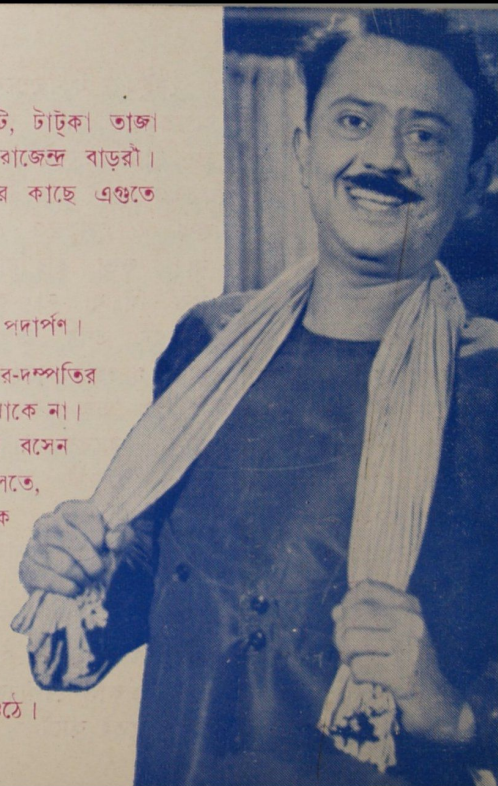 টাট্‌কা তাজা
রাজেন্দ্র বাড়রী।
কাছে এগুতে
পদার্পণ।
র-দম্পতির
থাকে না।
বসেন